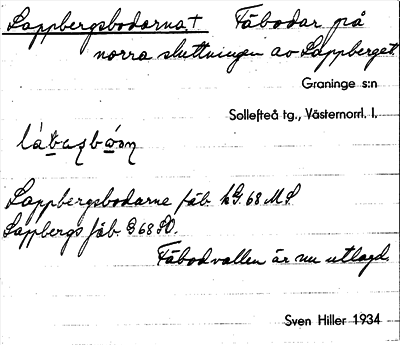 Lappbergsbodarna + Fäbodar på
norra sluttningen av Lappberget
Graninge s:n
Sollefteå tg., Västernorrl. l.
Lappbergsbodarne fäb. kG. 68 MS
Lappbergs fäb. G 68 SO.
Fäbodvallen är nu utlagd.
Sven Hiller 1934